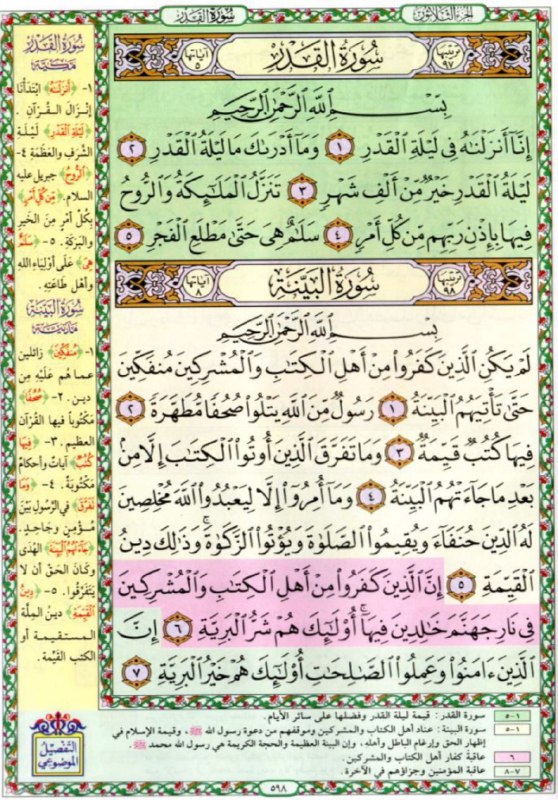 الجزء الثلاثون
سورة القدر
ترتيبها ٩٧
سُورَةُ القَدْرِ
آياتها ٥
بِسْمِ اللَّهِ الرَّحْمَٰنِ الرَّحِيمِ
إِنَّا أَنزَلْنَٰهُ فِى لَيْلَةِ ٱلْقَدْرِ ١ وَمَآ أَدْرَىٰكَ مَا لَيْلَةُ ٱلْقَدْرِ ٢
لَيْلَةُ ٱلْقَدْرِ خَيْرٌ مِّنْ أَلْفِ شَهْرٍ ٣ تَنَزَّلُ ٱلْمَلَٰٓئِكَةُ وَٱلرُّوحُ
فِيهَا بِإِذْنِ رَبِّهِم مِّن كُلِّ أَمْرٍ ٤ سَلَٰمٌ هِىَ حَتَّىٰ مَطْلَعِ ٱلْفَجْرِ ٥
ترتيبها ٩٨
سُورَةُ البَيِّنَةِ
آياتها ٨
بِسْمِ اللَّهِ الرَّحْمَٰنِ الرَّحِيمِ
لَمْ يَكُنِ ٱلَّذِينَ كَفَرُوا۟ مِنْ أَهْلِ ٱلْكِتَٰبِ وَٱلْمُشْرِكِينَ مُنفَكِّينَ
حَتَّىٰ تَأْتِيَهُمُ ٱلْبَيِّنَةُ ١ رَسُولٌ مِّنَ ٱللَّهِ يَتْلُوا۟ صُحُفًا مُّطَهَّرَةً ٢
فِيهَا كُتُبٌ قَيِّمَةٌ ٣ وَمَا تَفَرَّقَ ٱلَّذِينَ أُوتُوا۟ ٱلْكِتَٰبَ إِلَّا مِنۢ
بَعْدِ مَا جَآءَتْهُمُ ٱلْبَيِّنَةُ ٤ وَمَآ أُمِرُوٓا۟ إِلَّا لِيَعْبُدُوا۟ ٱللَّهَ مُخْلِصِينَ
لَهُ ٱلدِّينَ حُنَفَآءَ وَيُقِيمُوا۟ ٱلصَّلَوٰةَ وَيُؤْتُوا۟ ٱلزَّكَوٰةَ ۚ وَذَٰلِكَ دِينُ
ٱلْقَيِّمَةِ ٥ إِنَّ ٱلَّذِينَ كَفَرُوا۟ مِنْ أَهْلِ ٱلْكِتَٰبِ وَٱلْمُشْرِكِينَ
فِى نَارِ جَهَنَّمَ خَٰلِدِينَ فِيهَآ ۚ أُو۟لَٰٓئِكَ هُمْ شَرُّ ٱلْبَرِيَّةِ ٦ إِنَّ
ٱلَّذِينَ ءَامَنُوا۟ وَعَمِلُوا۟ ٱلصَّٰلِحَٰتِ أُو۟لَٰٓئِكَ هُمْ خَيْرُ ٱلْبَرِيَّةِ ٧
سُورَةُ القَدْرِ
مكية
١- ﴿أَنزَلْنَاهُ﴾ ابتدأنا
إنزال القرآن .
﴿لَيْلَةِ القَدْرِ﴾ ليلة
الشرف والعظمة ٤-
﴿الرُّوحُ﴾ جبريل عليه
السلام. ﴿مِّن كُلِّ أَمْرٍ﴾
بكل أمر من الخير
والبركة. ٥- ﴿سَلَامٌ
هِيَ﴾ على أولياء الله
وأهل طاعته.
سُورَةُ البَيِّنَةِ
مدنية
١- ﴿مُنفَكِّينَ﴾ زائلين
عما هم عليه من
دين. ٢- ﴿صُحُفًا﴾
مكتوباً فيها القرآن
العظيم. ٣- ﴿فِيهَا
كُتُبٌ﴾ آيات وأحكام
مكتوبة. ٤- ﴿وَمَا
تَفَرَّقَ﴾ في الرسول بين
مؤمن وجاحد.
﴿جَاءَتْهُمُ الْبَيِّنَةُ﴾ الهدى
وكان الحق أن لا
يتفرقوا. ٥- ﴿دِينُ
الْقَيِّمَةِ﴾ دين الملة
المستقيمة أو
الكتب القيمة.
١-٥ سورة القدر : قيمة ليلة القدر وفضلها على سائر الأيام.
١-٥ سورة البينة : عناد أهل الكتاب والمشركين وموقفهم من دعوة رسول الله ﷺ، وقيمة الإسلام في
إظهار الحق وإرغام الباطل وأهله، وإن البينة العظيمة والحجة الكريمة هي رسول الله محمد ﷺ.
٦ عاقبة كفار أهل الكتاب والمشركين.
٧-٨ عاقبة المؤمنين وجزاؤهم في الآخرة.
التفصيل
الموضوعي
٥٩٨